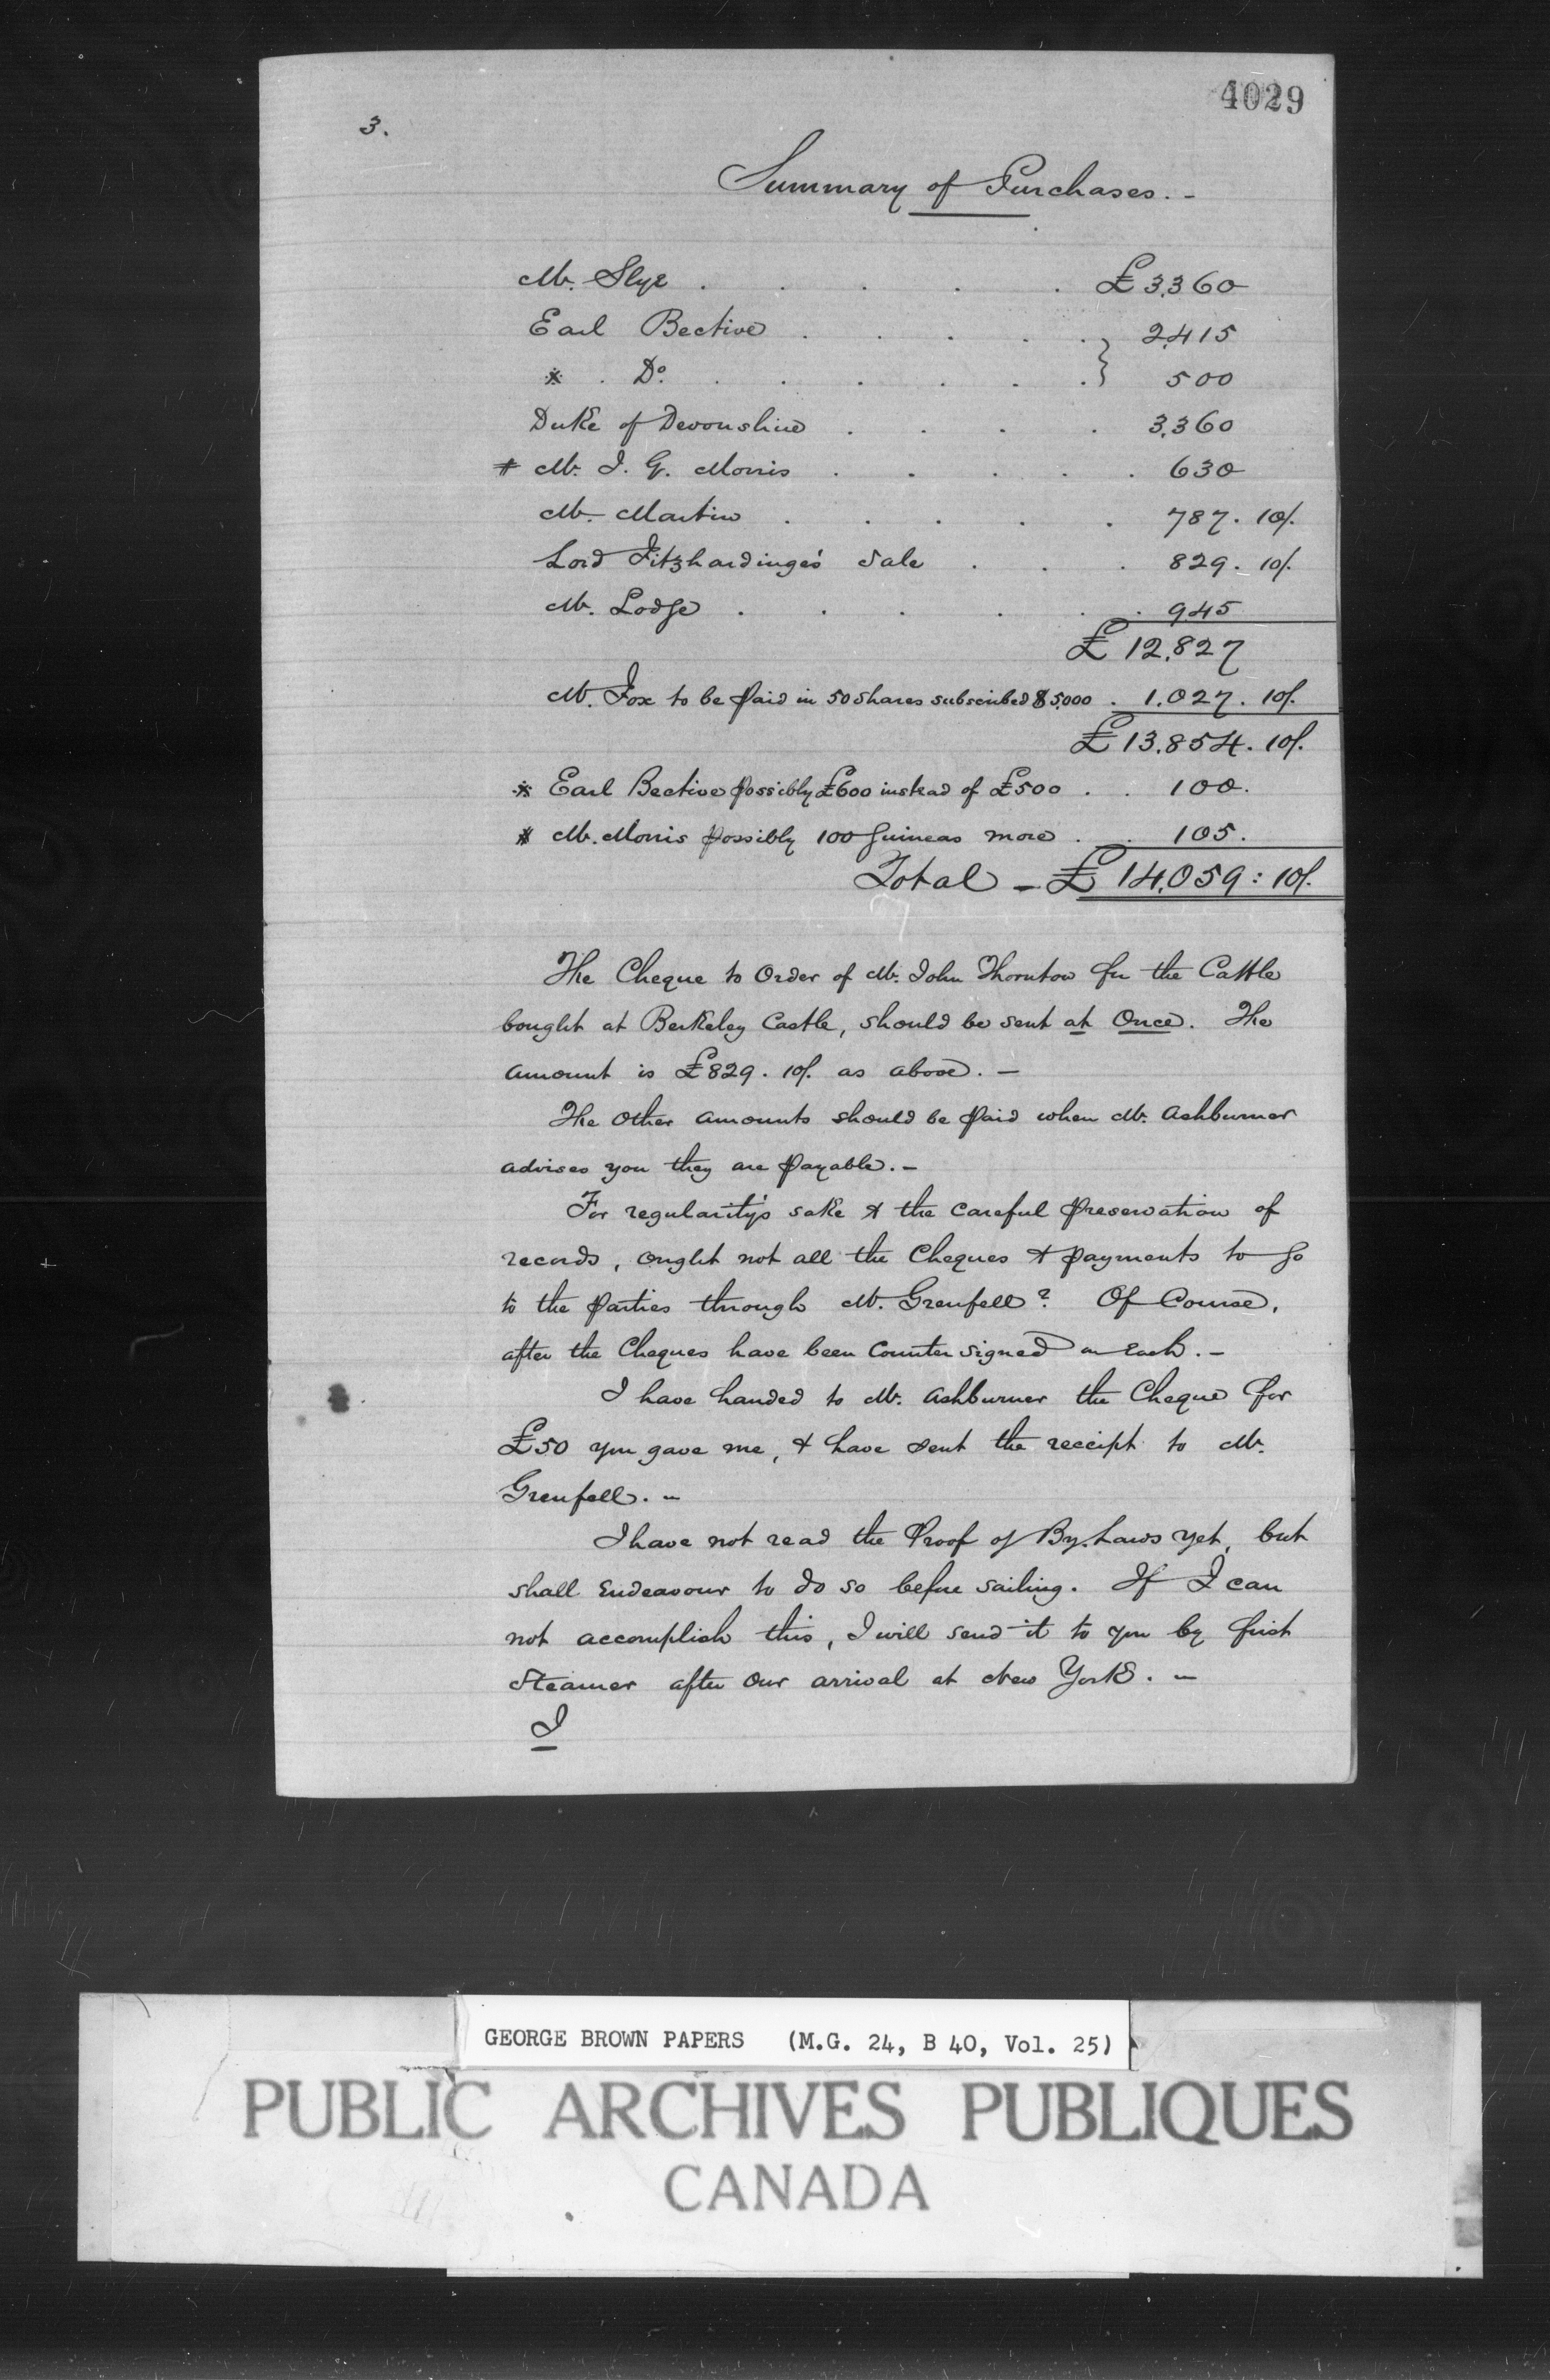 4029
3.
Summary of Purchases. -
Mr. Slye . . . . . £ 3,360
Earl Bective . . . . . 2,415
* . Do. . . . . . . } 500
Duke of Devonshire . . . . 3,360
* Mr. J. G. Morris . . . . . 630
Mr. Martin . . . . . 787. 10/.
Lord Fitzhardinge's Sale . . . 829. 10/.
Mr. Lodge . . . . . . 945
£ 12,827
Mr. Fox to be paid in 50 Shares subscribed $5,000 . 1.027. 10/.
£ 13,854. 10/.
* Earl Bective possibly £600 instead of £500 . . 100.
* Mr. Morris possibly 100 Guineas more . . 105.
Total - £ 14,059 : 10/.
The Cheque to Order of Mr. John Thornton for the Cattle
bought at Berkeley Castle, should be sent at Once. The
amount is £829. 10/. as above. -
The Other amounts should be paid when Mr. Ashburner
advises you they are payable. -
For regularity's sake & the careful preservation of
records, ought not all the Cheques & payments to go
to the parties through Mr. Grenfell? Of Course,
after the Cheques have been Counter signed on Each. -
I have handed to Mr. Ashburner the Cheque for
£50 you gave me, & have sent the receipt to Mr.
Grenfell. -
I have not read the Proof of By. Laws yet, but
shall Endeavour to do so before sailing. If I can
not accomplish this, I will send it to you by first
Steamer after Our arrival at New York. -
I
GEORGE BROWN PAPERS (M.G. 24, B 40, Vol. 25)
PUBLIC ARCHIVES PUBLIQUES
CANADA